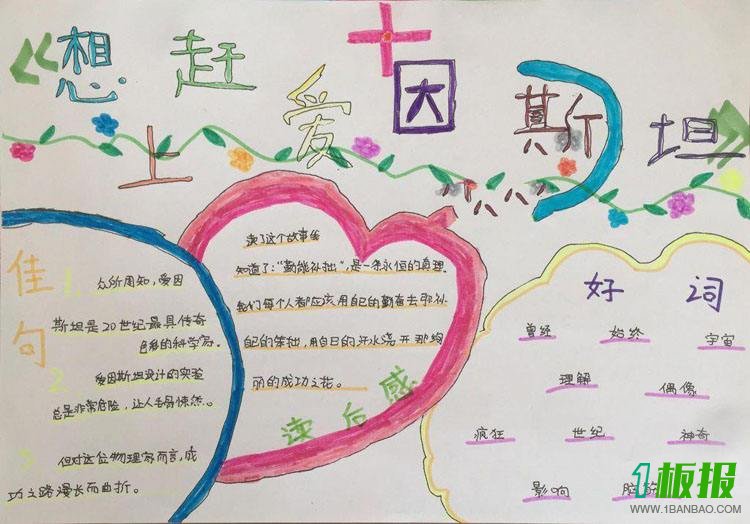 《想赶上爱因斯坦》
佳句
1. 众所周知,爱因
斯坦是20世纪最具传奇
色彩的科学家。
2. 爱因斯坦设计的实验
总是非常危险,让人毛骨悚然。
3 但对这位物理家而言,成
功之路漫长而曲折。
读了这个故事我
知道了:“勤能补拙”,是一条永恒的真理。
我们每个人都应该用自己的勤奋去弥补
自己的笨拙,用自己的汗水浇开那绚
丽的成功之花。
读后感
好词
曾经 始终 宇宙
理解 偶像
疯狂 世纪 神奇
影响
1板报
WWW.1BANBAO.COM